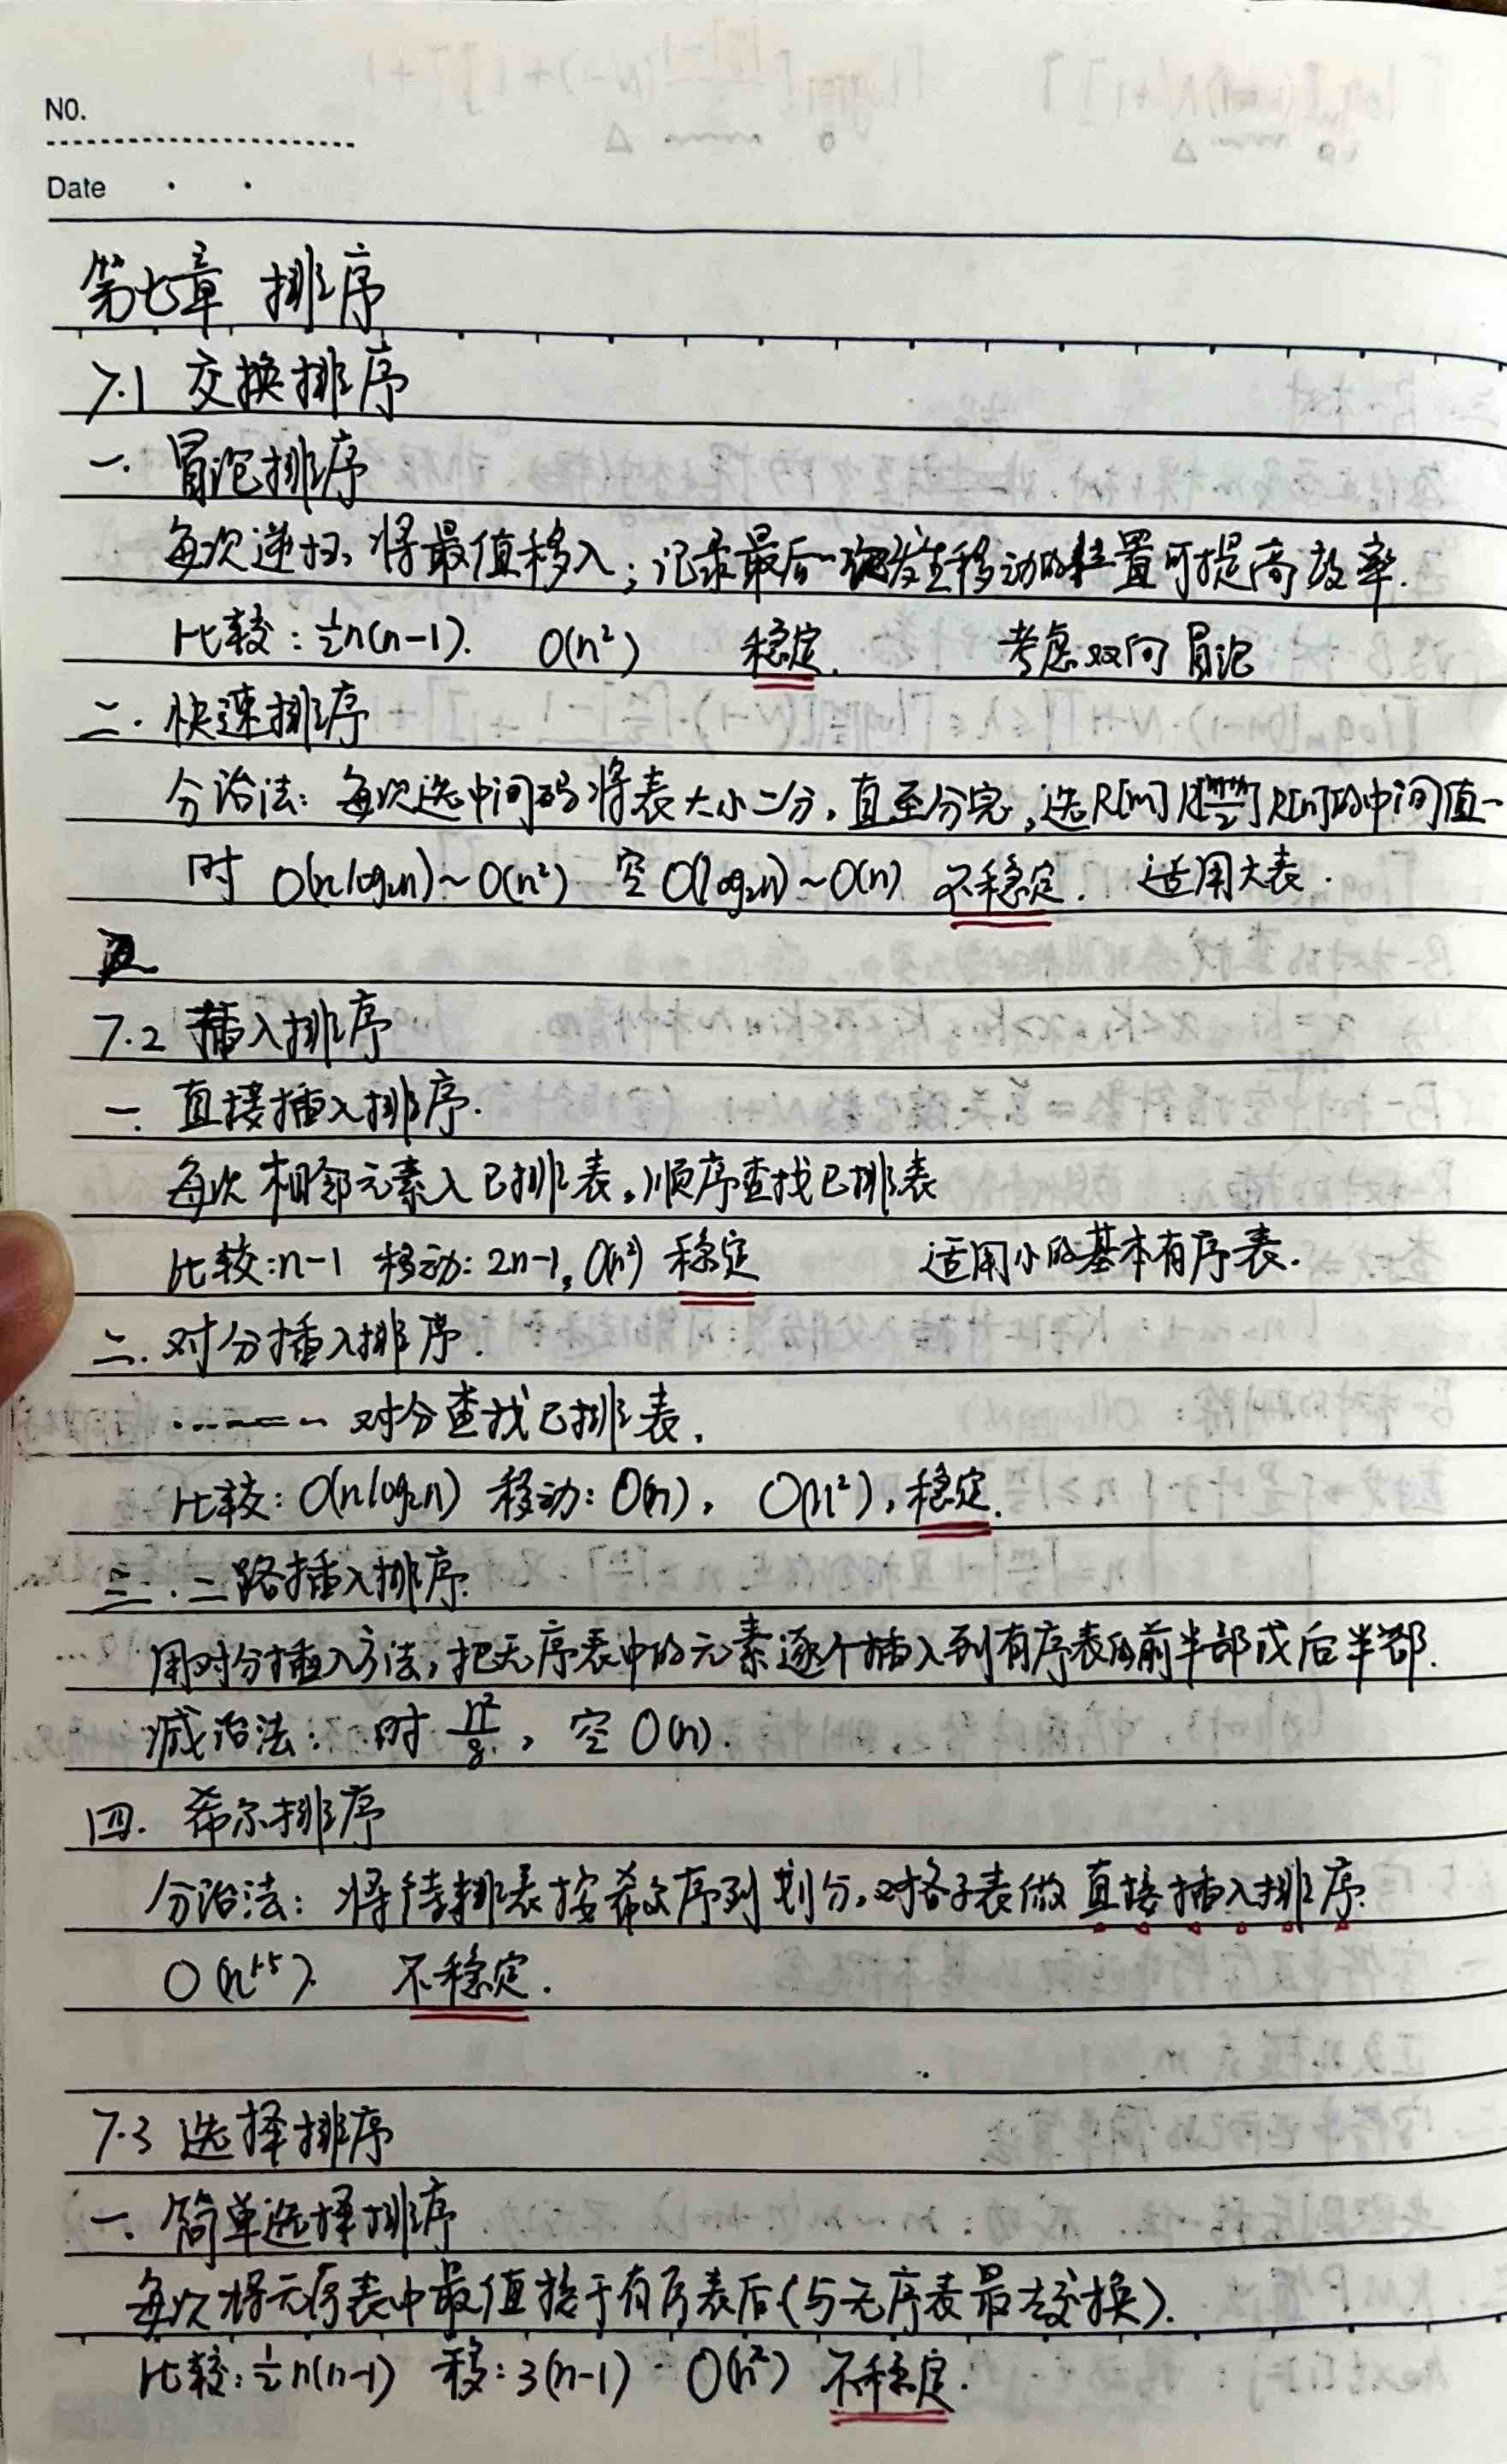 NO.
Date
第七章 排序
7.1 交换排序
一. 冒泡排序
每次逆扫, 将最值移入; 记录最后一次发生移动的位置可提高效率.
比较: ½n(n-1). O(n²) 稳定. 考虑双向冒泡
二. 快速排序
分治法: 每次选中间码将表大小二分, 直至分完, 选R[m] R[] R[n]的中间值
时 O(nlog₂n)~O(n²) 空 O(log₂n)~O(n) 不稳定. 适用大表.
7.2 插入排序
一. 直接插入排序.
每次相邻元素入已排表, 顺序查找已排表
比较: n-1 移动: 2n-1, O(n²) 稳定 适用小的基本有序表.
二. 对分插入排序.
对分查找已排表.
比较: O(nlog₂n) 移动: O(n), O(n²), 稳定.
三. 二路插入排序.
用对分插入方法, 把无序表中的元素逐个插入到有序表的前半部或后半部.
减治法: 时 n²/8, 空 O(n).
四. 希尔排序
分治法: 将待排表按希尔序列划分, 对各子表做直接插入排序.
O(n^1.5). 不稳定.
7.3 选择排序
一. 简单选择排序
每次将无序表中最值接于有序表后(与无序表最左交换).
比较: ½n(n-1) 移: 3(n-1) O(n²) 不稳定.